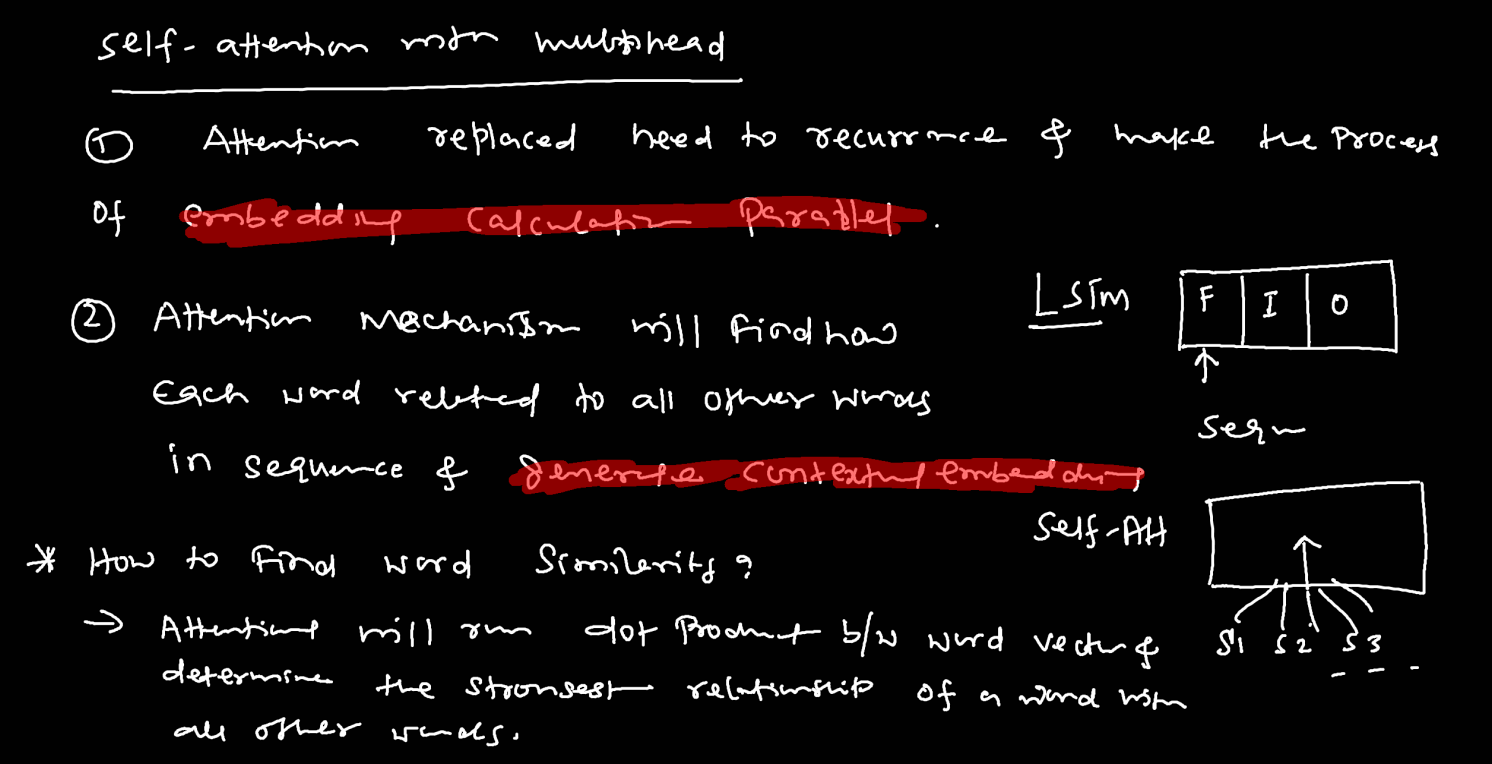 self-attention with multihead
① Attention replaced need to recurrence & make the process
of embedding calculation parallel.
② Attention Mechanism will find how
Each word related to all other words
in sequence & generate contextual embedding
LSTM
F I O
Seqn
Self-Att
S1 S2 S3 - - -
* How to find word Similarity?
→ Attention will run dot product b/w word vector &
determine the strongest relationship of a word with
all other words.